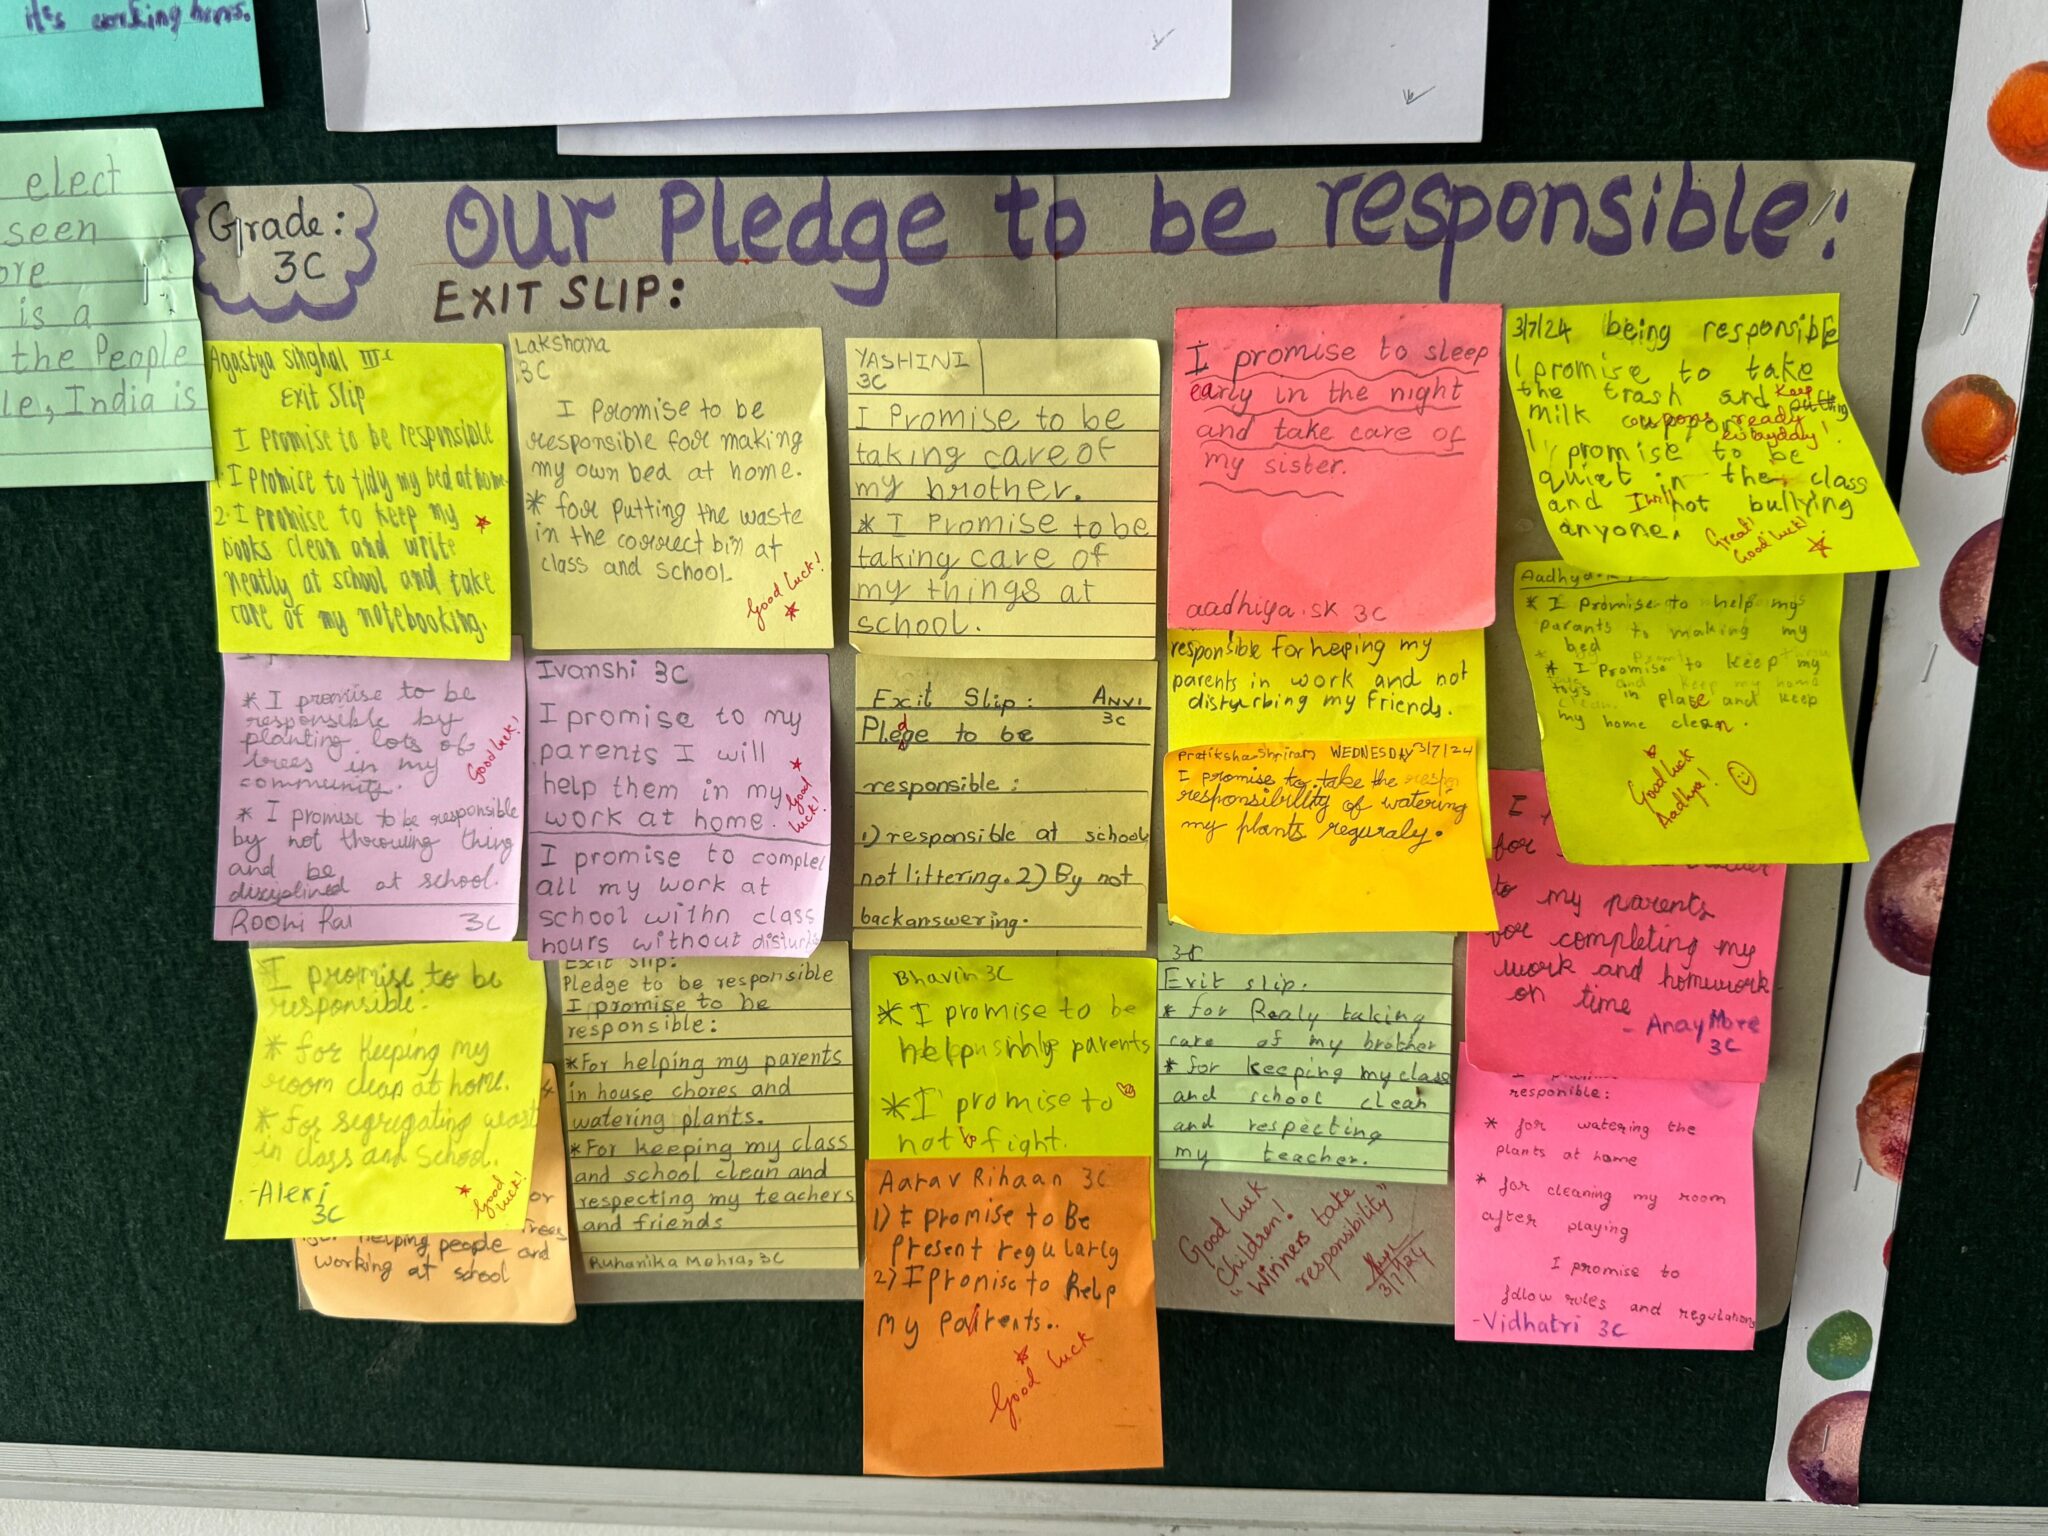 it's working hours.
elect
seen
ore
is a
the People
le, India is
Grade:
3C
Our Pledge to be responsible:
EXIT SLIP:
Agastya Singhal III C
Exit Slip
I promise to be responsible
1. I promise to tidy my bed at home
2. I promise to keep my
books clean and write
neatly at school and take
care of my notebooking.
Lakshana
3C
I Poromise to be
responsible foor making
my own bed at home.
* foor putting the waste
in the correct bin at
class and school
Good luck!
YASHINI
3C
I Promise to be
taking care of
my brother.
* I Promise to be
taking care of
my things at
school.
I promise to sleep
early in the night
and take care of
my sister.
aadhiya.sk 3C
3/7/24 being responsible
I promise to take
the trash and keep
milk coupons ready
everyday!
I promise to be
quiet in the class
and I will not bullying
anyone.
Great!
Good luck!
* I promise to be
responsible by
planting lots of
trees in my
community.
* I promise to be responsible
by not throwing thing
and be
disciplined at school.
Roohi Rai 3C
Good luck!
Ivanshi 3C
I promise to my
parents I will
help them in my
work at home.
I promise to complet
all my work at
school withn class
hours without disturb
Good
luck!
Exit Slip: ANVI
3C
Pledge to be
responsible:
1) responsible at school
not littering. 2) By not
backanswering.
responsible for helping my
parents in work and not
disturbing my friends.
Pratiksha Shriram WEDNESDAY 3/7/24
I promise to take the
responsibility of watering
my plants reguraly.
Aadhya.
* I promise to help my
parants to making my
bed
* I promise to keep my
toys in place and keep
my home clean.
Good luck
Aadhya!
I
for
to my parents
for completing my
work and homework
on time
- Anay More
3C
I promise to be
responsible.
* for keeping my
room clean at home.
* for segregating wast
in class and school.
- Alexi
3C
Good
luck!
for helping people and
working at school
Exit Slip:
Pledge to be responsible
I promise to be
responsible:
* For helping my parents
in house chores and
watering plants.
* For keeping my class
and school clean and
respecting my teachers
and friends
Ruhanika Mehra, 3C
Bhavin 3C
* I promise to be
help my parents
* I promise to
not to fight.
Aarav Rihaan 3C
1) I promise to Be
present regularly
2) I promise to help
my parents..
Good luck
Exit slip.
* for Realy taking
care of my brother
* for keeping my class
and school clean
and respecting
my teacher.
Good luck
Children!
"Winners take
responsibility"
3/7/24
responible:
* for watering the
plants at home
* for cleaning my room
after playing
I promise to
follow rules and regulations
- Vidhatri 3C